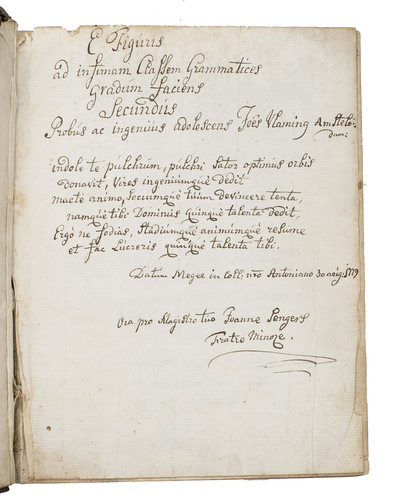 E Figuris
ad infimam Classem Grammatices
Gradum faciens
Secundus
Probus ac ingenuus adolescens Joēs Vlaming Amstelo-
dam:
indole te pulchrum, pulchri sator optimus orbis
donavit, vires ingeniumquè dedit
macte animo, sociumquè tuum devincere tenta,
namquè tibi Dominus quinquè talenta dedit,
Ergo ne fodias, studiumquè animumquè resume
et fac Lucreris quinquè talenta tibi.
Datum Megee in Coll: nr̄o Antoniano 30 aug:
Ora pro Magistro tuo Joanne Sengers
Fratre Minore.